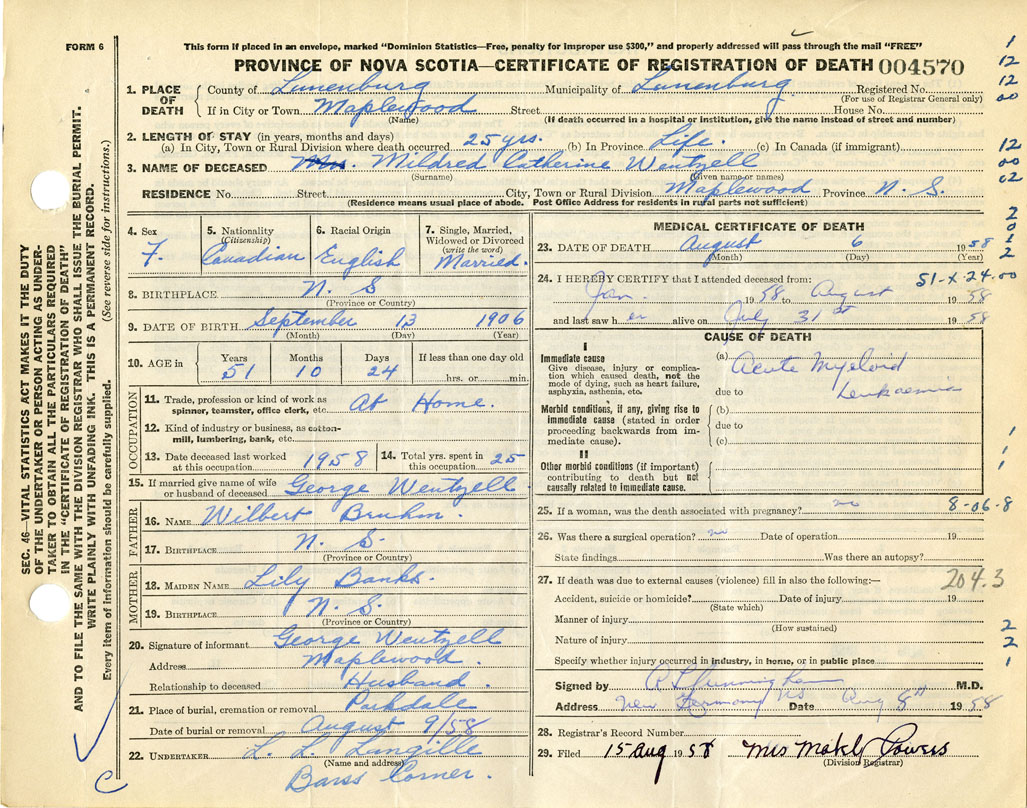 FORM 6
This form if placed in an envelope, marked "Dominion Statistics—Free, penalty for improper use $300," and properly addressed will pass through the mail "FREE"
PROVINCE OF NOVA SCOTIA—CERTIFICATE OF REGISTRATION OF DEATH 004570
1. PLACE OF DEATH County of Lunenburg Municipality of Lunenburg Registered No.
(For use of Registrar General only)
If in City or Town Maplewood Street House No.
(Name) (If death occurred in a hospital or institution, give the name instead of street and number)
2. LENGTH OF STAY (in years, months and days)
(a) In City, Town or Rural Division where death occurred 25 yrs. (b) In Province Life. (c) In Canada (if immigrant)
3. NAME OF DECEASED Mrs. Mildred Catherine Wentzell
(Surname) (Given name or names)
RESIDENCE No. Street City, Town or Rural Division Maplewood Province N. S.
(Residence means usual place of abode. Post Office Address for residents in rural parts not sufficient)
4. Sex F. 5. Nationality (Citizenship) Canadian 6. Racial Origin English 7. Single, Married, Widowed or Divorced (write the word) Married.
8. BIRTHPLACE N. S
(Province or Country)
9. DATE OF BIRTH September 13 1906
(Month) (Day) (Year)
10. AGE in Years Months Days If less than one day old
51 10 24 hrs. or min.
OCCUPATION
11. Trade, profession or kind of work as spinner, teamster, office clerk, etc. At Home.
12. Kind of industry or business, as cotton-mill, lumbering, bank, etc.
13. Date deceased last worked at this occupation 1958 14. Total yrs. spent in this occupation 25
15. If married give name of wife or husband of deceased George Wentzell
FATHER
16. NAME Wilbert Bruhm
17. BIRTHPLACE N. S.
(Province or Country)
MOTHER
18. MAIDEN NAME Lily Banks.
19. BIRTHPLACE N. S.
(Province or Country)
20. Signature of informant George Wentzell
Address Maplewood.
Relationship to deceased Husband.
21. Place of burial, cremation or removal Parkdale
Date of burial or removal August 9/58
22. UNDERTAKER L. L. Langille
(Name and address)
Barss Corner.
MEDICAL CERTIFICATE OF DEATH
23. DATE OF DEATH August 6 1958
(Month) (Day) (Year)
24. I HEREBY CERTIFY that I attended deceased from: 51-X-24.00
Jan. 1958 to August 1958
and last saw her alive on July 31st 1958
CAUSE OF DEATH
I
Immediate cause
Give disease, injury or complication which caused death, not the mode of dying, such as heart failure, asphyxia, asthenia, etc.
(a) Acute Myeloid
due to Leukaemia
Morbid conditions, if any, giving rise to immediate cause (stated in order proceeding backwards from immediate cause).
(b)
due to
(c)
II
Other morbid conditions (if important) contributing to death but not causally related to immediate cause.
25. If a woman, was the death associated with pregnancy? no 8-06-8
26. Was there a surgical operation? no Date of operation 19
State findings Was there an autopsy?
27. If death was due to external causes (violence) fill in also the following:— 204.3
Accident, suicide or homicide? Date of injury 19
(State which)
Manner of injury
(How sustained)
Nature of injury
Specify whether injury occurred in industry, in home, or in public place
Signed by M.D.
Address New Germany NS Date Aug 8th 1958
28. Registrar's Record Number
29. Filed 15 Aug 1958 Mrs Powers
(Division Registrar)
SEC. 46—VITAL STATISTICS ACT MAKES IT THE DUTY
OF THE UNDERTAKER OR PERSON ACTING AS UNDER-
TAKER TO OBTAIN ALL THE PARTICULARS REQUIRED
IN THE "CERTIFICATE OF REGISTRATION OF DEATH"
AND TO FILE THE SAME WITH THE DIVISION REGISTRAR WHO SHALL ISSUE THE BURIAL PERMIT.
WRITE PLAINLY WITH UNFADING INK. THIS IS A PERMANENT RECORD.
Every item of information should be carefully supplied. (See reverse side for instructions.)
C
1
12
12
00
12
00
02
2
0
1
2
1
1
2
2
1